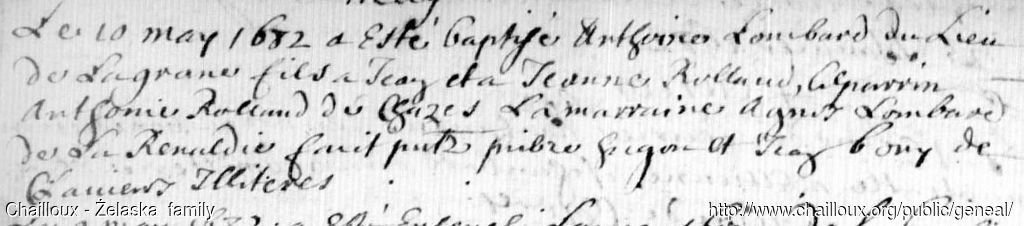 Le 10 may 1682 a Esté baptisé Anthoine Lombard du Lieu
de Lagrane fils a Jean et a Jeanne Rolland, le parrin
Anthonie Rolland de Chazes La marraine Agnes Lombard
de La Renaldie fait pntz Hugon et Jean bory de
Illiteres
Chailloux - Żelaska family
http://www.chailloux.org/public/geneal/